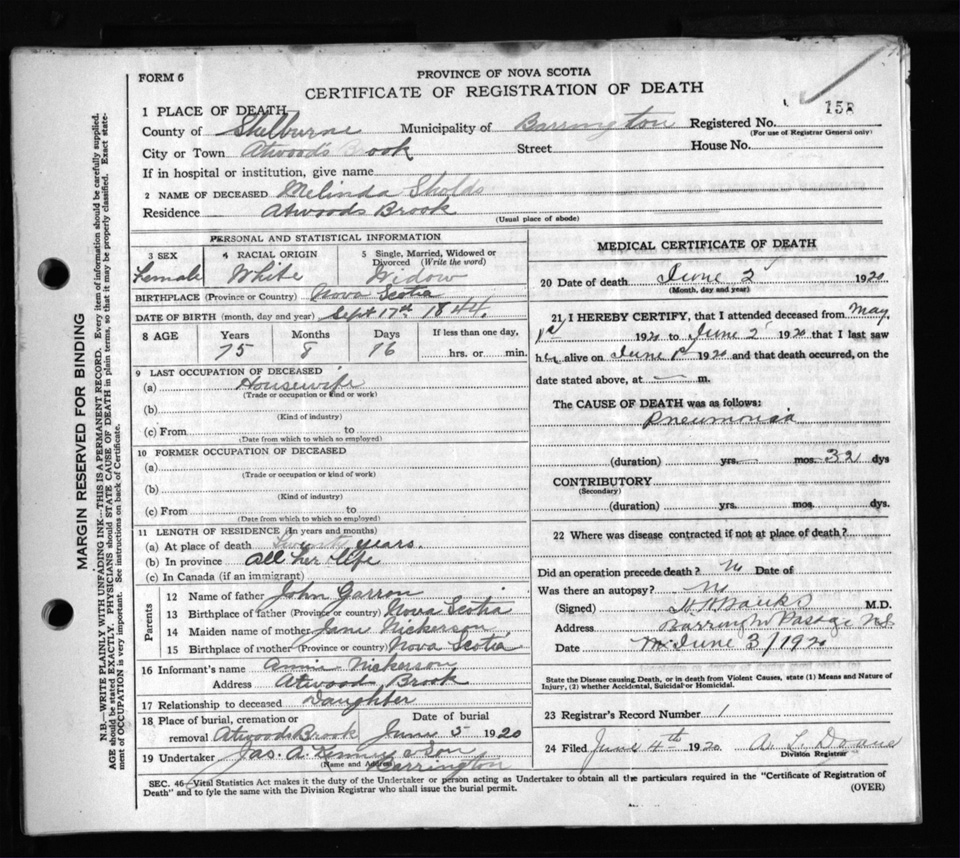 PROVINCE OF NOVA SCOTIA
FORM 6
CERTIFICATE OF REGISTRATION OF DEATH
158
1 PLACE OF DEATH
County of Shelburne Municipality of Barrington Registered No.
(For use of Registrar General only)
City or Town Atwoods Brook Street House No.
If in hospital or institution, give name
2 NAME OF DECEASED Melinda Sholds
Residence Atwoods Brook
(Usual place of abode)
PERSONAL AND STATISTICAL INFORMATION
3 SEX Female
4 RACIAL ORIGIN White
5 Single, Married, Widowed or Divorced (Write the word) Widow
BIRTHPLACE (Province or Country) Nova Scotia
DATE OF BIRTH (month, day and year) Sept 17th 1844.
8 AGE Years Months Days If less than one day,
75 8 16 hrs. or min.
9 LAST OCCUPATION OF DECEASED
(a) Housewife
(Trade or occupation or kind or work)
(b)
(Kind of industry)
(c) From to
(Date from which to which so employed)
10 FORMER OCCUPATION OF DECEASED
(a)
(Trade or occupation or kind of work)
(b)
(Kind of industry)
(c) From to
(Date from which to which so employed)
11 LENGTH OF RESIDENCE (in years and months)
(a) At place of death years.
(b) In province All her life
(c) In Canada (if an immigrant)
Parents
12 Name of father John Garron
13 Birthplace of father (Province or country) Nova Scotia
14 Maiden name of mother Jane Nickerson
15 Birthplace of mother (Province or country) Nova Scotia
16 Informant's name Annie Nickerson
Address Atwoods Brook
17 Relationship to deceased Daughter
18 Place of burial, cremation or removal Atwoods Brook Date of burial June 5 1920
19 Undertaker Jas. A. Kenney & Son
(Name and Address) Barrington
MEDICAL CERTIFICATE OF DEATH
20 Date of death June 2 1920
(Month, day and year)
21 I HEREBY CERTIFY, that I attended deceased from May
1st 1920 to June 2 1920 that I last saw
her alive on June 1st 1920 and that death occurred, on the
date stated above, at — m.
The CAUSE OF DEATH was as follows:
Pneumonia
(duration) yrs. mos. 32 dys
CONTRIBUTORY
(Secondary)
(duration) yrs. mos. dys.
22 Where was disease contracted if not at place of death?
Did an operation precede death? No Date of
Was there an autopsy? No
(Signed) Banks M.D.
Address Barrington Passage N.S.
Date June 3/1920
State the Disease causing Death, or in death from Violent Causes, state (1) Means and Nature of
Injury, (2) whether Accidental, Suicidal or Homicidal.
23 Registrar's Record Number 1
24 Filed June 4th 1920 A. L. Doane
Division Registrar
SEC. 46—Vital Statistics Act makes it the duty of the Undertaker or person acting as Undertaker to obtain all the particulars required in the "Certificate of Registration of
Death" and to fyle the same with the Division Registrar who shall issue the burial permit. (OVER)
MARGIN RESERVED FOR BINDING
N.B.—WRITE PLAINLY WITH UNFADING INK—THIS IS A PERMANENT RECORD. Every item of information should be carefully supplied.
AGE should be stated EXACTLY. PHYSICIANS should STATE CAUSE OF DEATH in plain terms, so that it may be properly classified. Exact statement
of OCCUPATION is very important. See instructions on back of Certificate.